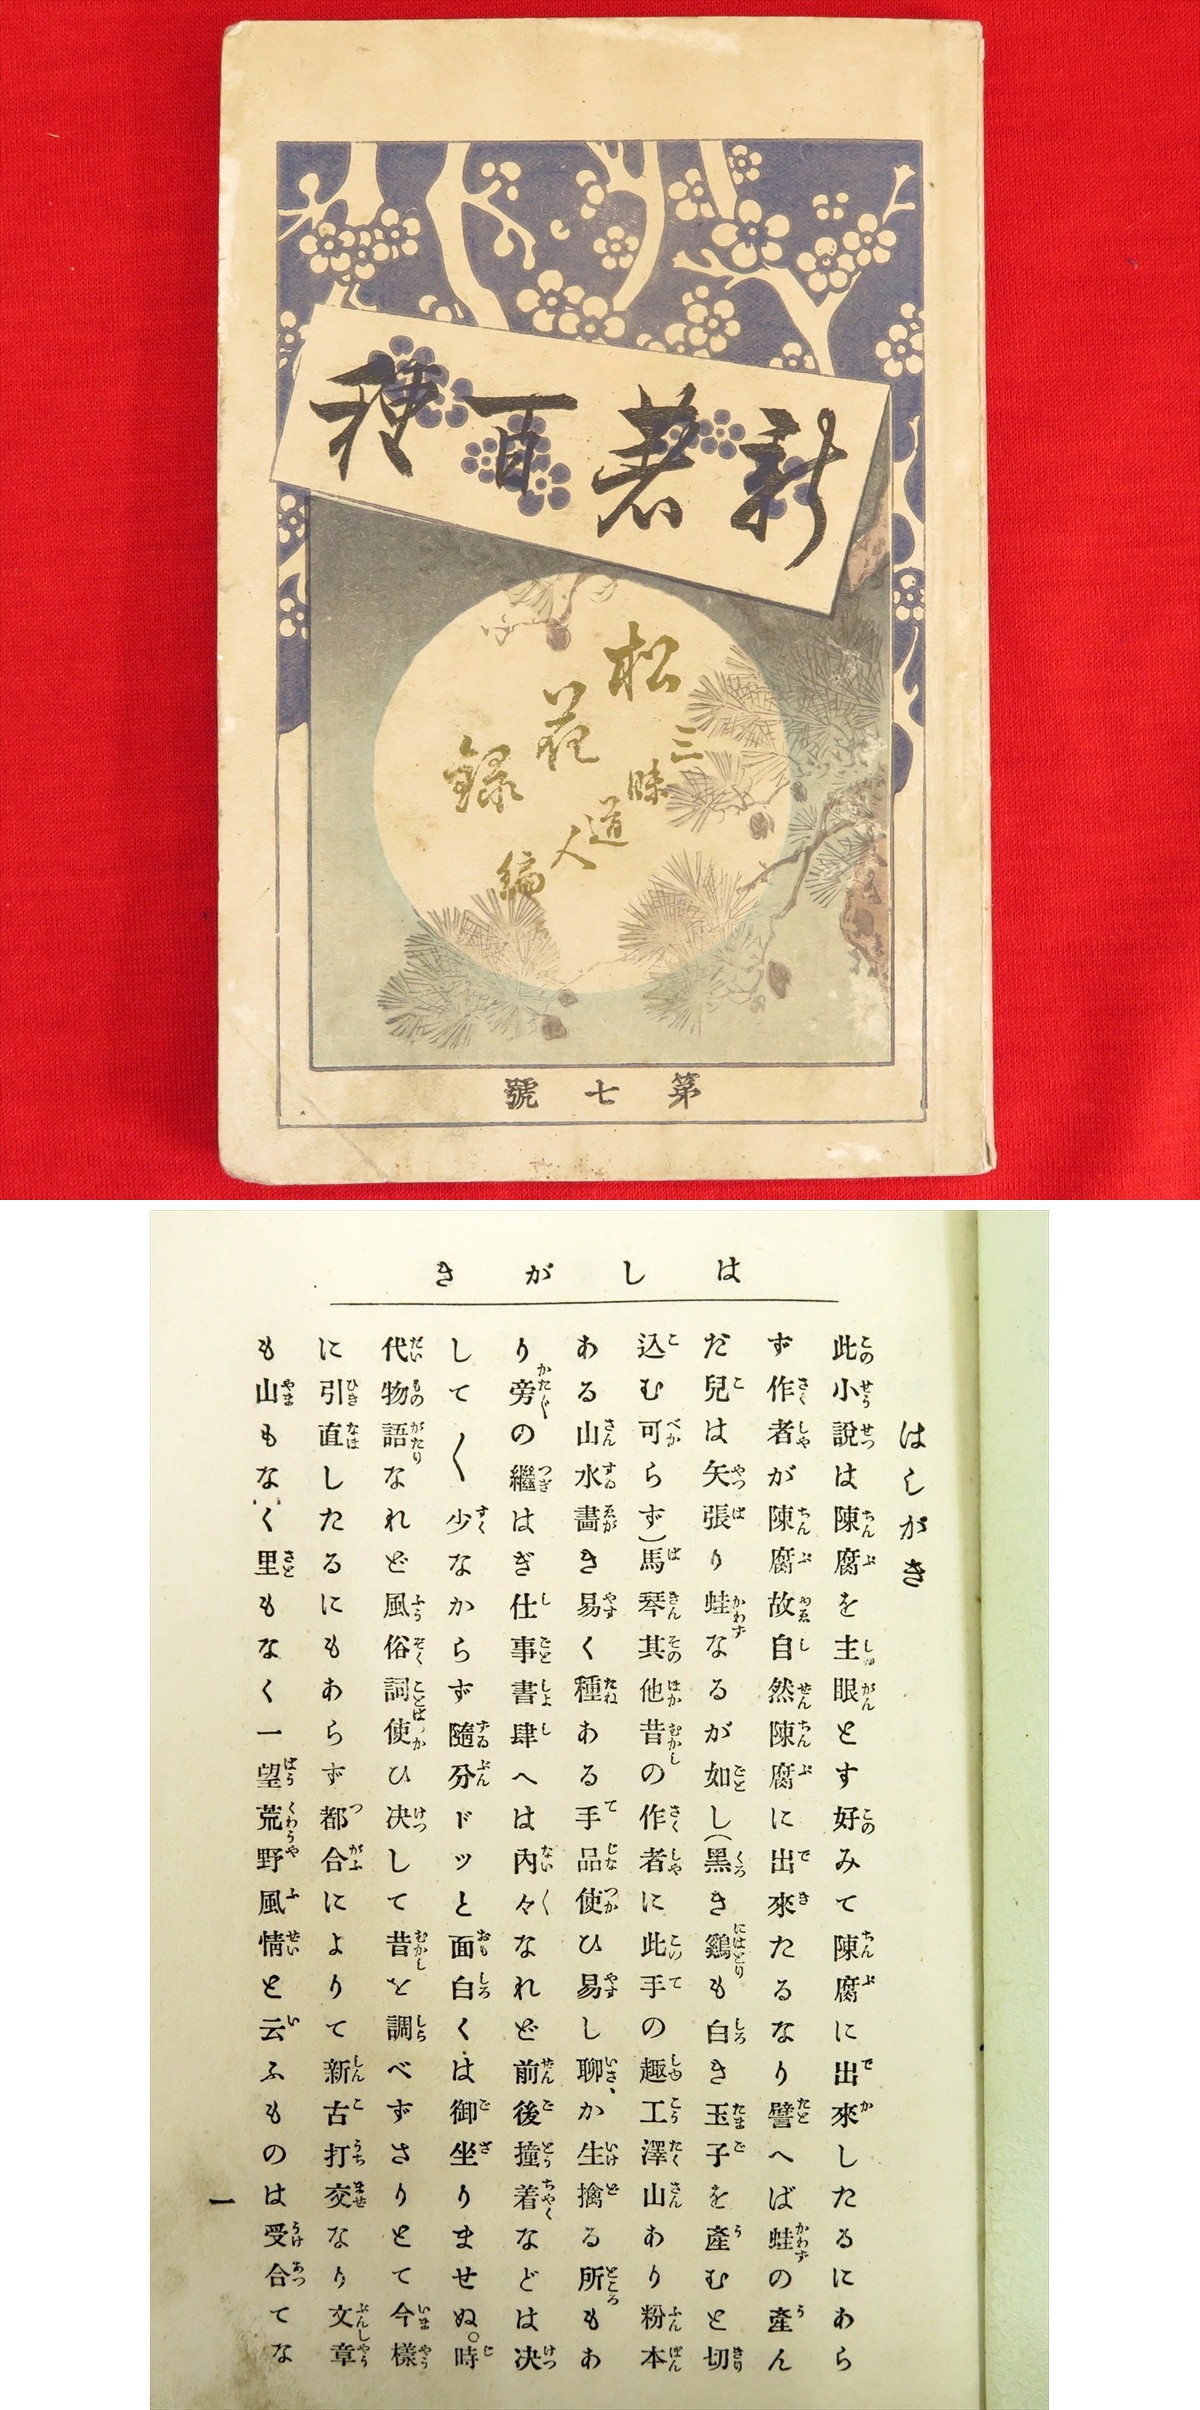 新著百種
松花録
三昧道人編
第七號
はしがき
はしがき
此小説は陳腐を主眼とす好みて陳腐に出來したるにあら
ず作者が陳腐故自然陳腐に出來たるなり譬へば蛙の產ん
だ兒は矢張り蛙なるが如し(黑き鷄も白き玉子を產むと切
込む可らず)馬琴其他昔の作者に此手の趣工澤山あり粉本
ある山水畫き易く種ある手品使ひ易し聊か生擒る所もあ
り旁の繼はぎ仕事書肆へは內々なれど前後撞着などは决
して〱少なからず隨分ドッと面白くは御坐りませぬ。時
代物語なれど風俗詞使ひ决して昔を調べずさりとて今樣
に引直したるにもあらず都合によりて新古打交なり文章
も山もなく里もなく一望荒野風情と云ふものは受合てな
一